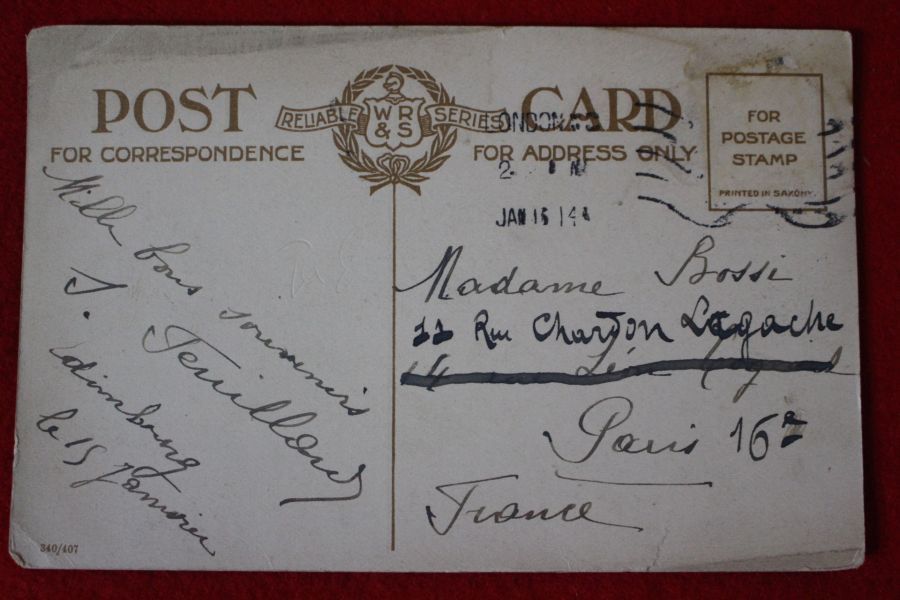 POST CARD
RELIABLE WR & S SERIES
FOR CORRESPONDENCE
FOR ADDRESS ONLY
FOR
POSTAGE
STAMP
PRINTED IN SAXONY
LONDON
JAN 15 14
Mille bons souvenirs
J. Feuillard
Edimbourg
le 15 Janvier
Madame Bossi
11 Rue Chardon Lagache
Paris 16e
France
340/407